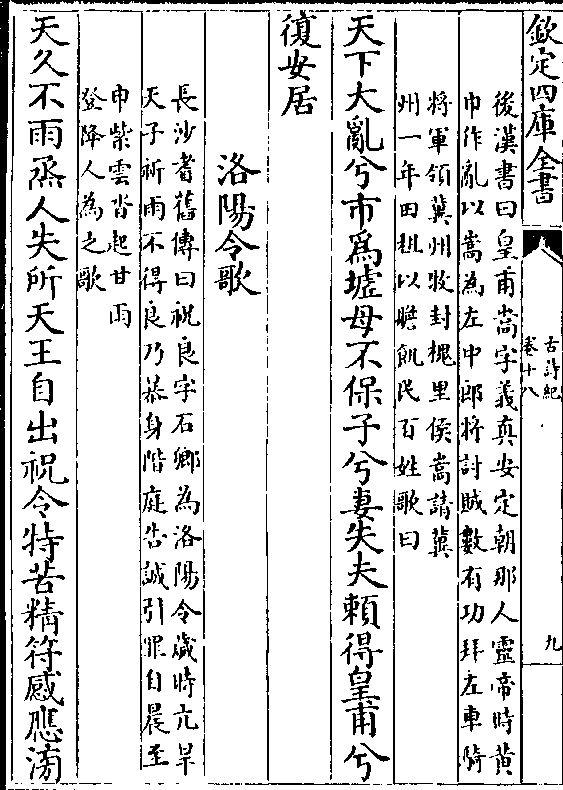 欽定四庫全書
古詩紀
卷十八
九
後漢書曰皇甫嵩字義真安定朝那人靈帝時黄
巾作亂以嵩為左中郎將討賊數有功拜左車騎
將軍領冀州牧封槐里侯嵩請冀
州一年田租以贍飢民百姓歌曰
天下大亂兮市爲墟母不保子兮妻失夫賴得皇甫兮
復安居
洛陽令歌
長沙耆舊傳曰祝良字石卿為洛陽令歲時亢旱
天子祈雨不得良乃暴身階庭告誠引罪自晨至
中紫雲沓起甘雨
登降人為之歌
天久不雨烝人失所天王自出祝令特苦精符感應滂